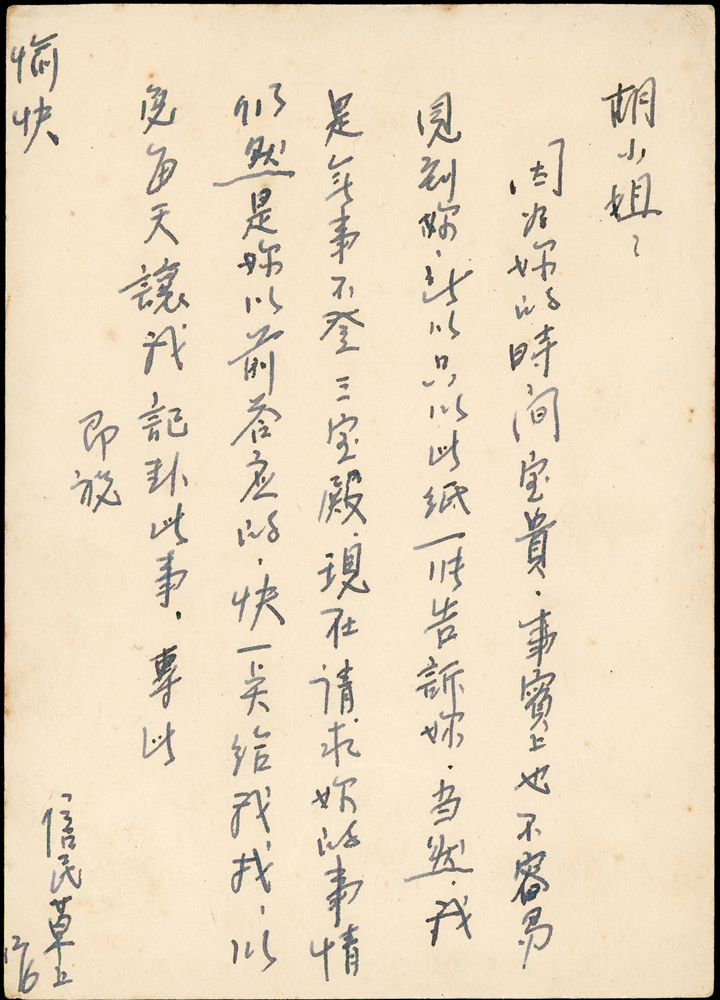 胡小姐：
因為妳的時间宝貴，事實上也不容易
見到妳，所以只以此紙一張告訴妳，当然，我
是無事不登三宝殿，現在請求妳的事情
仍然是妳以前答应的，快一点给我找，以
免每天讓我記卦此事，專此
即祝
愉快
信民草上
12/6